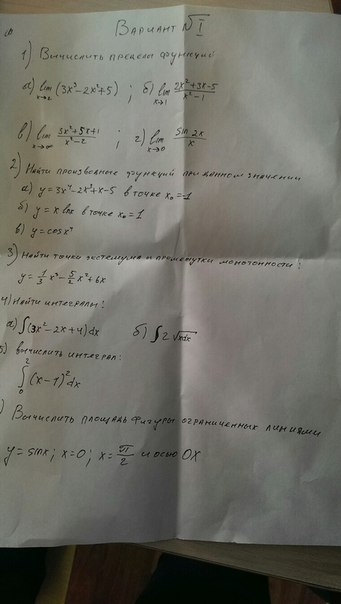 Вариант №I
1) Вычислить пределы функций
а) lim x→2 (3x³-2x²+5) ; б) lim x→1 2x²+3x-5 / x²-1
в) lim x→∞ 3x²+5x+1 / x²-2 ; г) lim x→0 sin 2x / x
2) Найти производные функций при данном значении
а) y=3x⁴-2x²+x-5 в точке x₀=-1
б) y = x lnx в точке x₀=1
в) y=cosx⁴
3) Найти точки экстемума и промежутки монотонности:
y= 1/3 x³- 5/2 x²+6x
4) Найти интегралы:
а) ∫(3x²-2x+4)dx б) ∫2√xdx
5) вычислить интеграл:
∫₀² (x-1)²dx
) Вычислить площадь фигуры ограниченных линиями
y=sinx; x=0; x= π/2 и осью OX